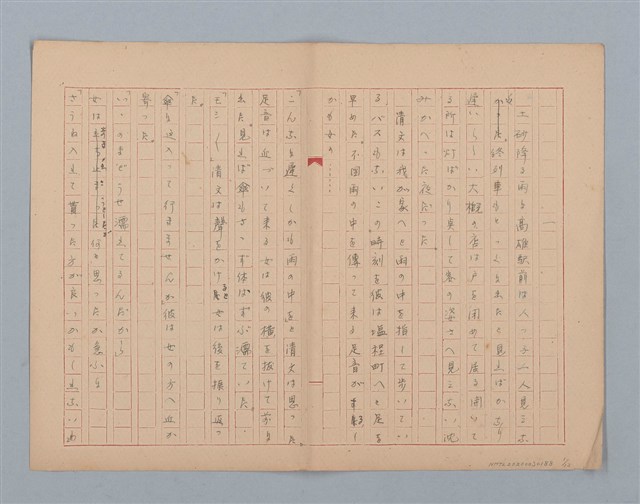 一
土砂降る雨の高雄駅前は人つ子一人見えな
終列車もとつくに出たと見えばかなり
遅いらしい大概の店は戸を閉めて居る開いて
る所は灯ばかり点して客の姿さへ見えない沈
みかへつた夜だつた。
清文は我が家へと雨の中を指して歩いてい
るバスもないこの時刻を彼は塩埕町へと足を
早めた。不図雨の中を傳つて来る足音が
かも女の……
こんなに遅くしかも雨の中をと清文は思つた。
足音は近づいて来る女は彼の横を抜けて
出た。見えば傘もささず体はずぶ濡れていた。
「もしもし」清文は聲をかけた女は後を振り返つ
た。
「傘に這入つて行きませんか」彼は女の方へ近か
寄つた。
「いゝえまぜうせ濡れてるんだから」
女は何を思つたか急に
「さうねへ入て貰つた方が良いかもしれないわ